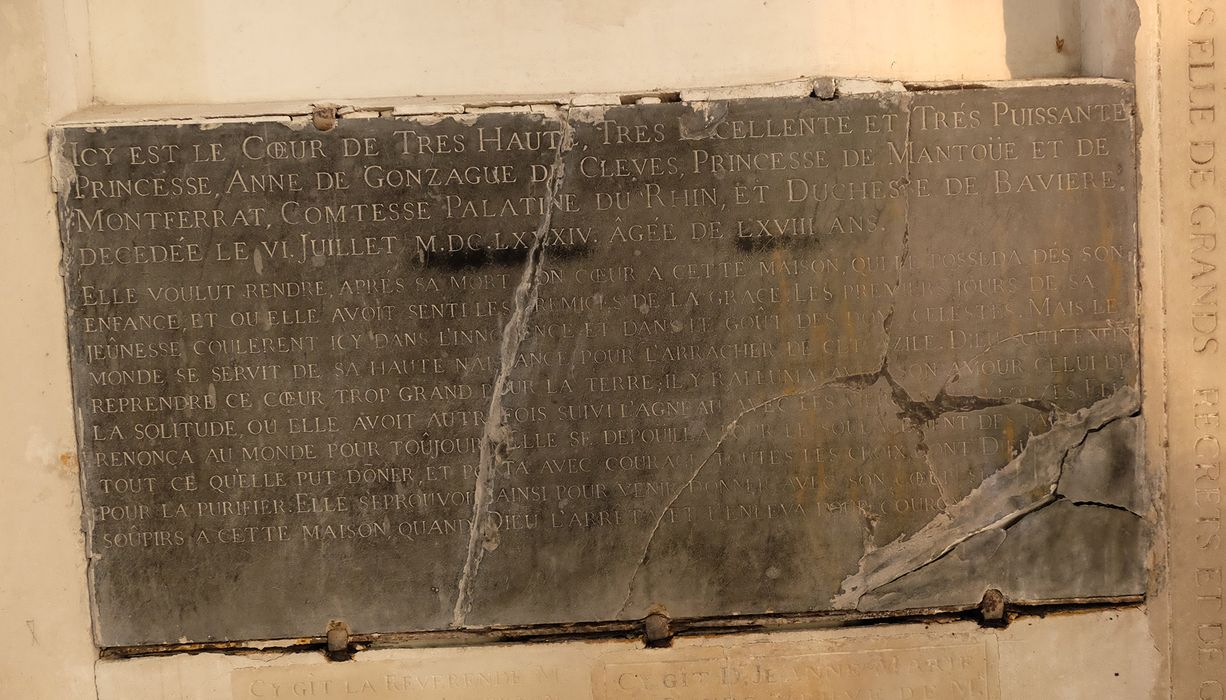 ICY EST LE CŒUR DE TRES HAUTE, TRES EXCELLENTE ET TRÉS PUISSANTE
PRINCESSE, ANNE DE GONZAGUE DE CLEVES, PRINCESSE DE MANTOÜE ET DE
MONTFERRAT, COMTESSE PALATINE DU RHIN, ET DUCHESSE DE BAVIERE.
DECEDÉE LE VI. JUILLET M.DC.LXXXIV. ÂGÉE DE LXVIII ANS.
ELLE VOULUT RENDRE, APRÉS SA MORT SON CŒUR A CETTE MAISON, QUI LE POSSEDA DÉS SON
ENFANCE, ET OU ELLE AVOIT SENTI LES PREMICES DE LA GRACE. LES PREMIERS JOURS DE SA
JEÛNESSE COULERENT ICY DANS L'INNOCENCE ET DANS LE GOÛT DES DONS CELESTES. MAIS LE
MONDE, SE SERVIT DE SA HAUTE NAISSANCE POUR L'ARRACHER DE CET AZILE. DIEU
REPRENDRE CE CŒUR TROP GRAND POUR LA TERRE; IL Y RALLUMA AVEC SON AMOUR CELUI DE
LA SOLITUDE, OU ELLE AVOIT AUTREFOIS SUIVI L'AGNEAU AVEC LES ELLE
RENONÇA AU MONDE POUR TOUJOURS ELLE SE DEPOUILLA POUR LE SOULAGEMENT DE
TOUT CE QU'ELLE PUT DÕNER, ET PORTA AVEC COURAGE TOUTES LES CROIX DONT DIEU
POUR LA PURIFIER. ELLE S'EPROUVOIT AINSI POUR VENIR DONNER AVEC SON CŒUR
SOÛPIRS A CETTE MAISON, QUAND DIEU L'ARRETA ET L'ENLEVA POUR
CY GÎT LA REVERENDE M
CY GIT D. JEANNE MARIE
S ELLE DE GRANDS REGRETS ET DE